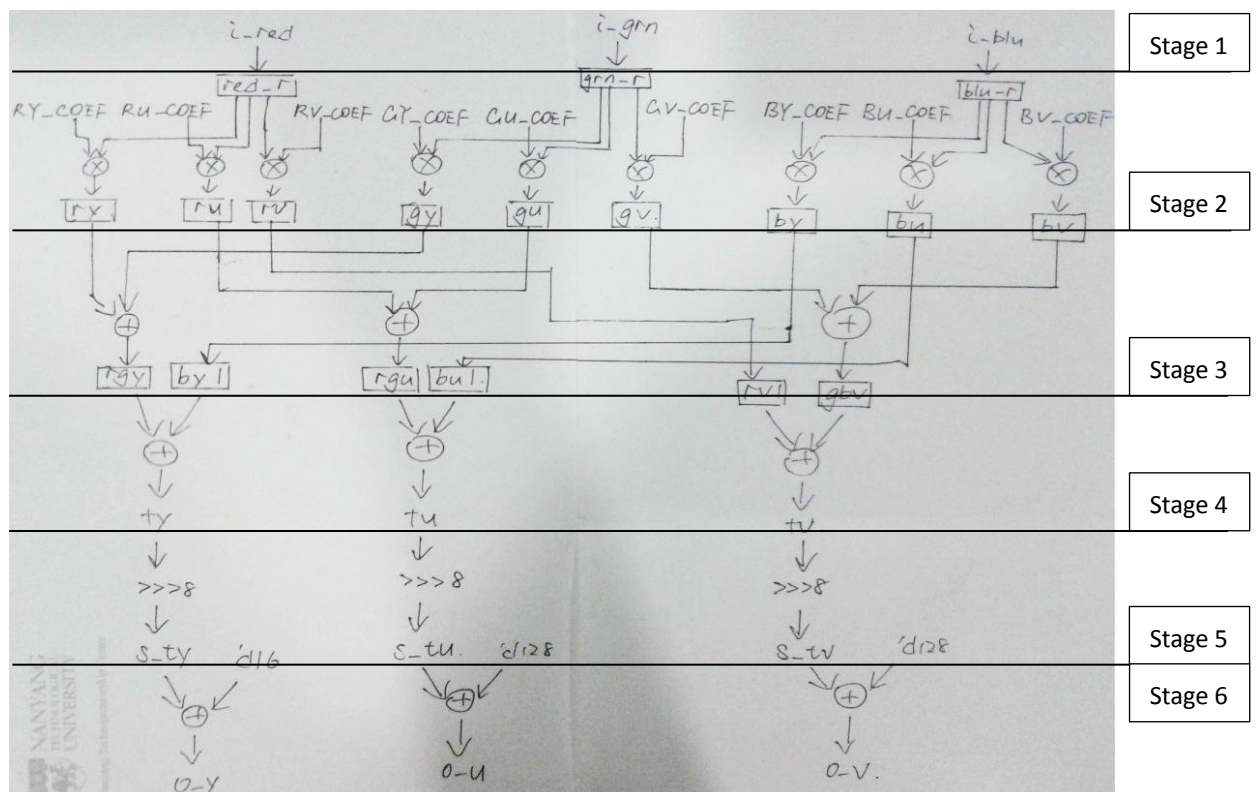 i_red i_grn i_blu Stage 1
red_r grn_r blu_r
RY_COEF RU_COEF RV_COEF GY_COEF GU_COEF GV_COEF BY_COEF BU_COEF BV_COEF
× × × × × × × × ×
ry ru rv gy gu gv. by bu bv Stage 2
+ + +
rgy by1 rgu bu1. rv1 gbv Stage 3
+ + +
ty tu tv Stage 4
>>>8 >>>8 >>>8
s_ty 'd16 s_tu. 'd128 s_tv 'd128 Stage 5
+ + + Stage 6
o_y o_u o_v.
NANYANG
TECHNOLOGICAL
UNIVERSITY